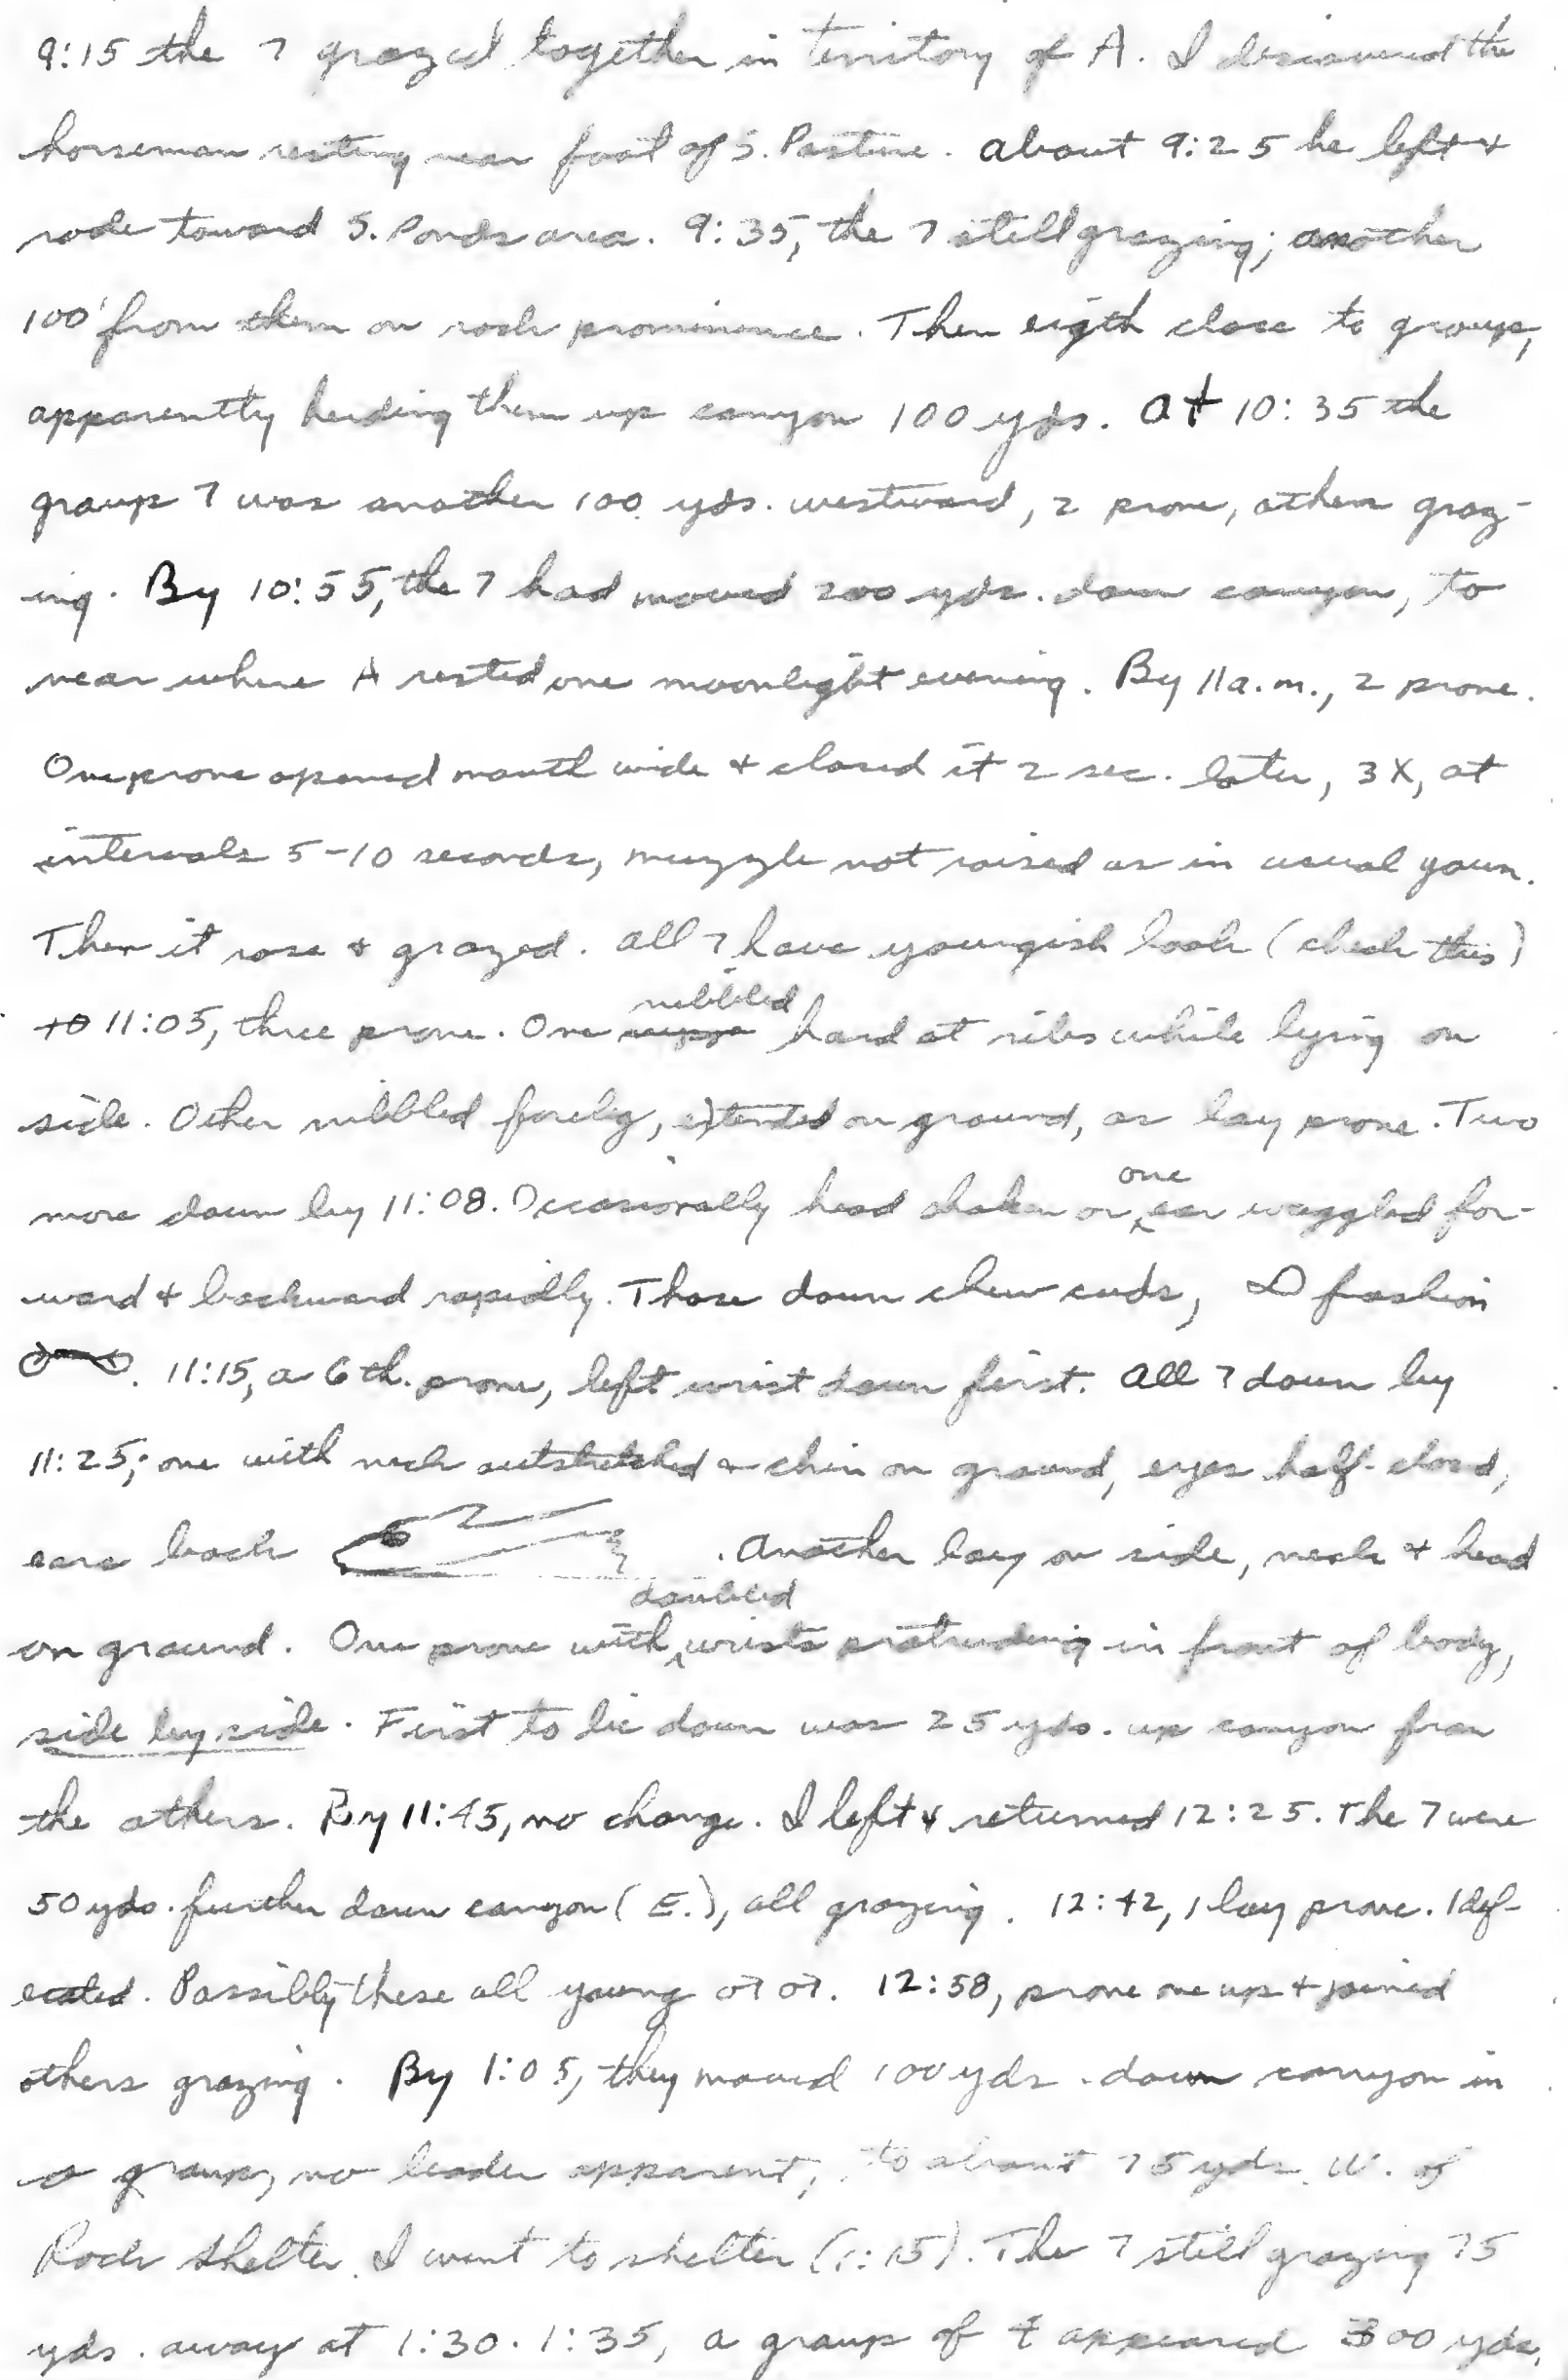 9:15 the 7 grazed together in territory of A. I discovered the
horseman resting near foot of S. Pasture. About 9:25 he left &
rode toward S. Ponds area. 9:35, the 7 still grazing; another
100' from them on rock prominence. Then eigth close to group,
apparently herding them up canyon 100 yds. At 10:35 the
group 7 was another 100 yds. westward, 2 prone, others graz-
ing. By 10:55, the 7 had moved 200 yds. down canyon, to
near where A rested one moonlight evening. By 11 a.m., 2 prone.
One prone opened mouth wide & closed it 2 sec. later, 3X, at
intervals 5-10 seconds, muzzle not raised as in usual yawn.
Then it rose & grazed. All 7 have youngish look (check this)
to 11:05, three prone. One nibbled hard at ribs while lying on
side. Other nibbled foreleg, extended on ground, as lay prone. Two
more down by 11:08. Occasionally head shaken or one ear waggled for-
ward & backward rapidly. Those down chew cuds, ∞ fashion
. 11:15, a 6th. prone, left wrist down first. All 7 down by
11:25; one with neck outstretched & chin on ground, eyes half-closed,
ears back . Another lay on side, neck & head
on ground. One prone with doubled wrists protruding in front of body,
side by side. First to lie down was 25 yds. up canyon from
the others. By 11:45, no change. I left & returned 12:25. The 7 were
50 yds. further down canyon (E.), all grazing. 12:42, 1 lay prone. 1 def-
ecated. Possibly these all young ♂♂. 12:58, prone one up & joined
others grazing. By 1:05, they moved 100 yds. down canyon in
a group, no leader apparent, to about 75 yds. W. of
Rock Shelter. I went to shelter (1:15). The 7 still grazing 75
yds. away at 1:30. 1:35, a group of appeared 300 yds.